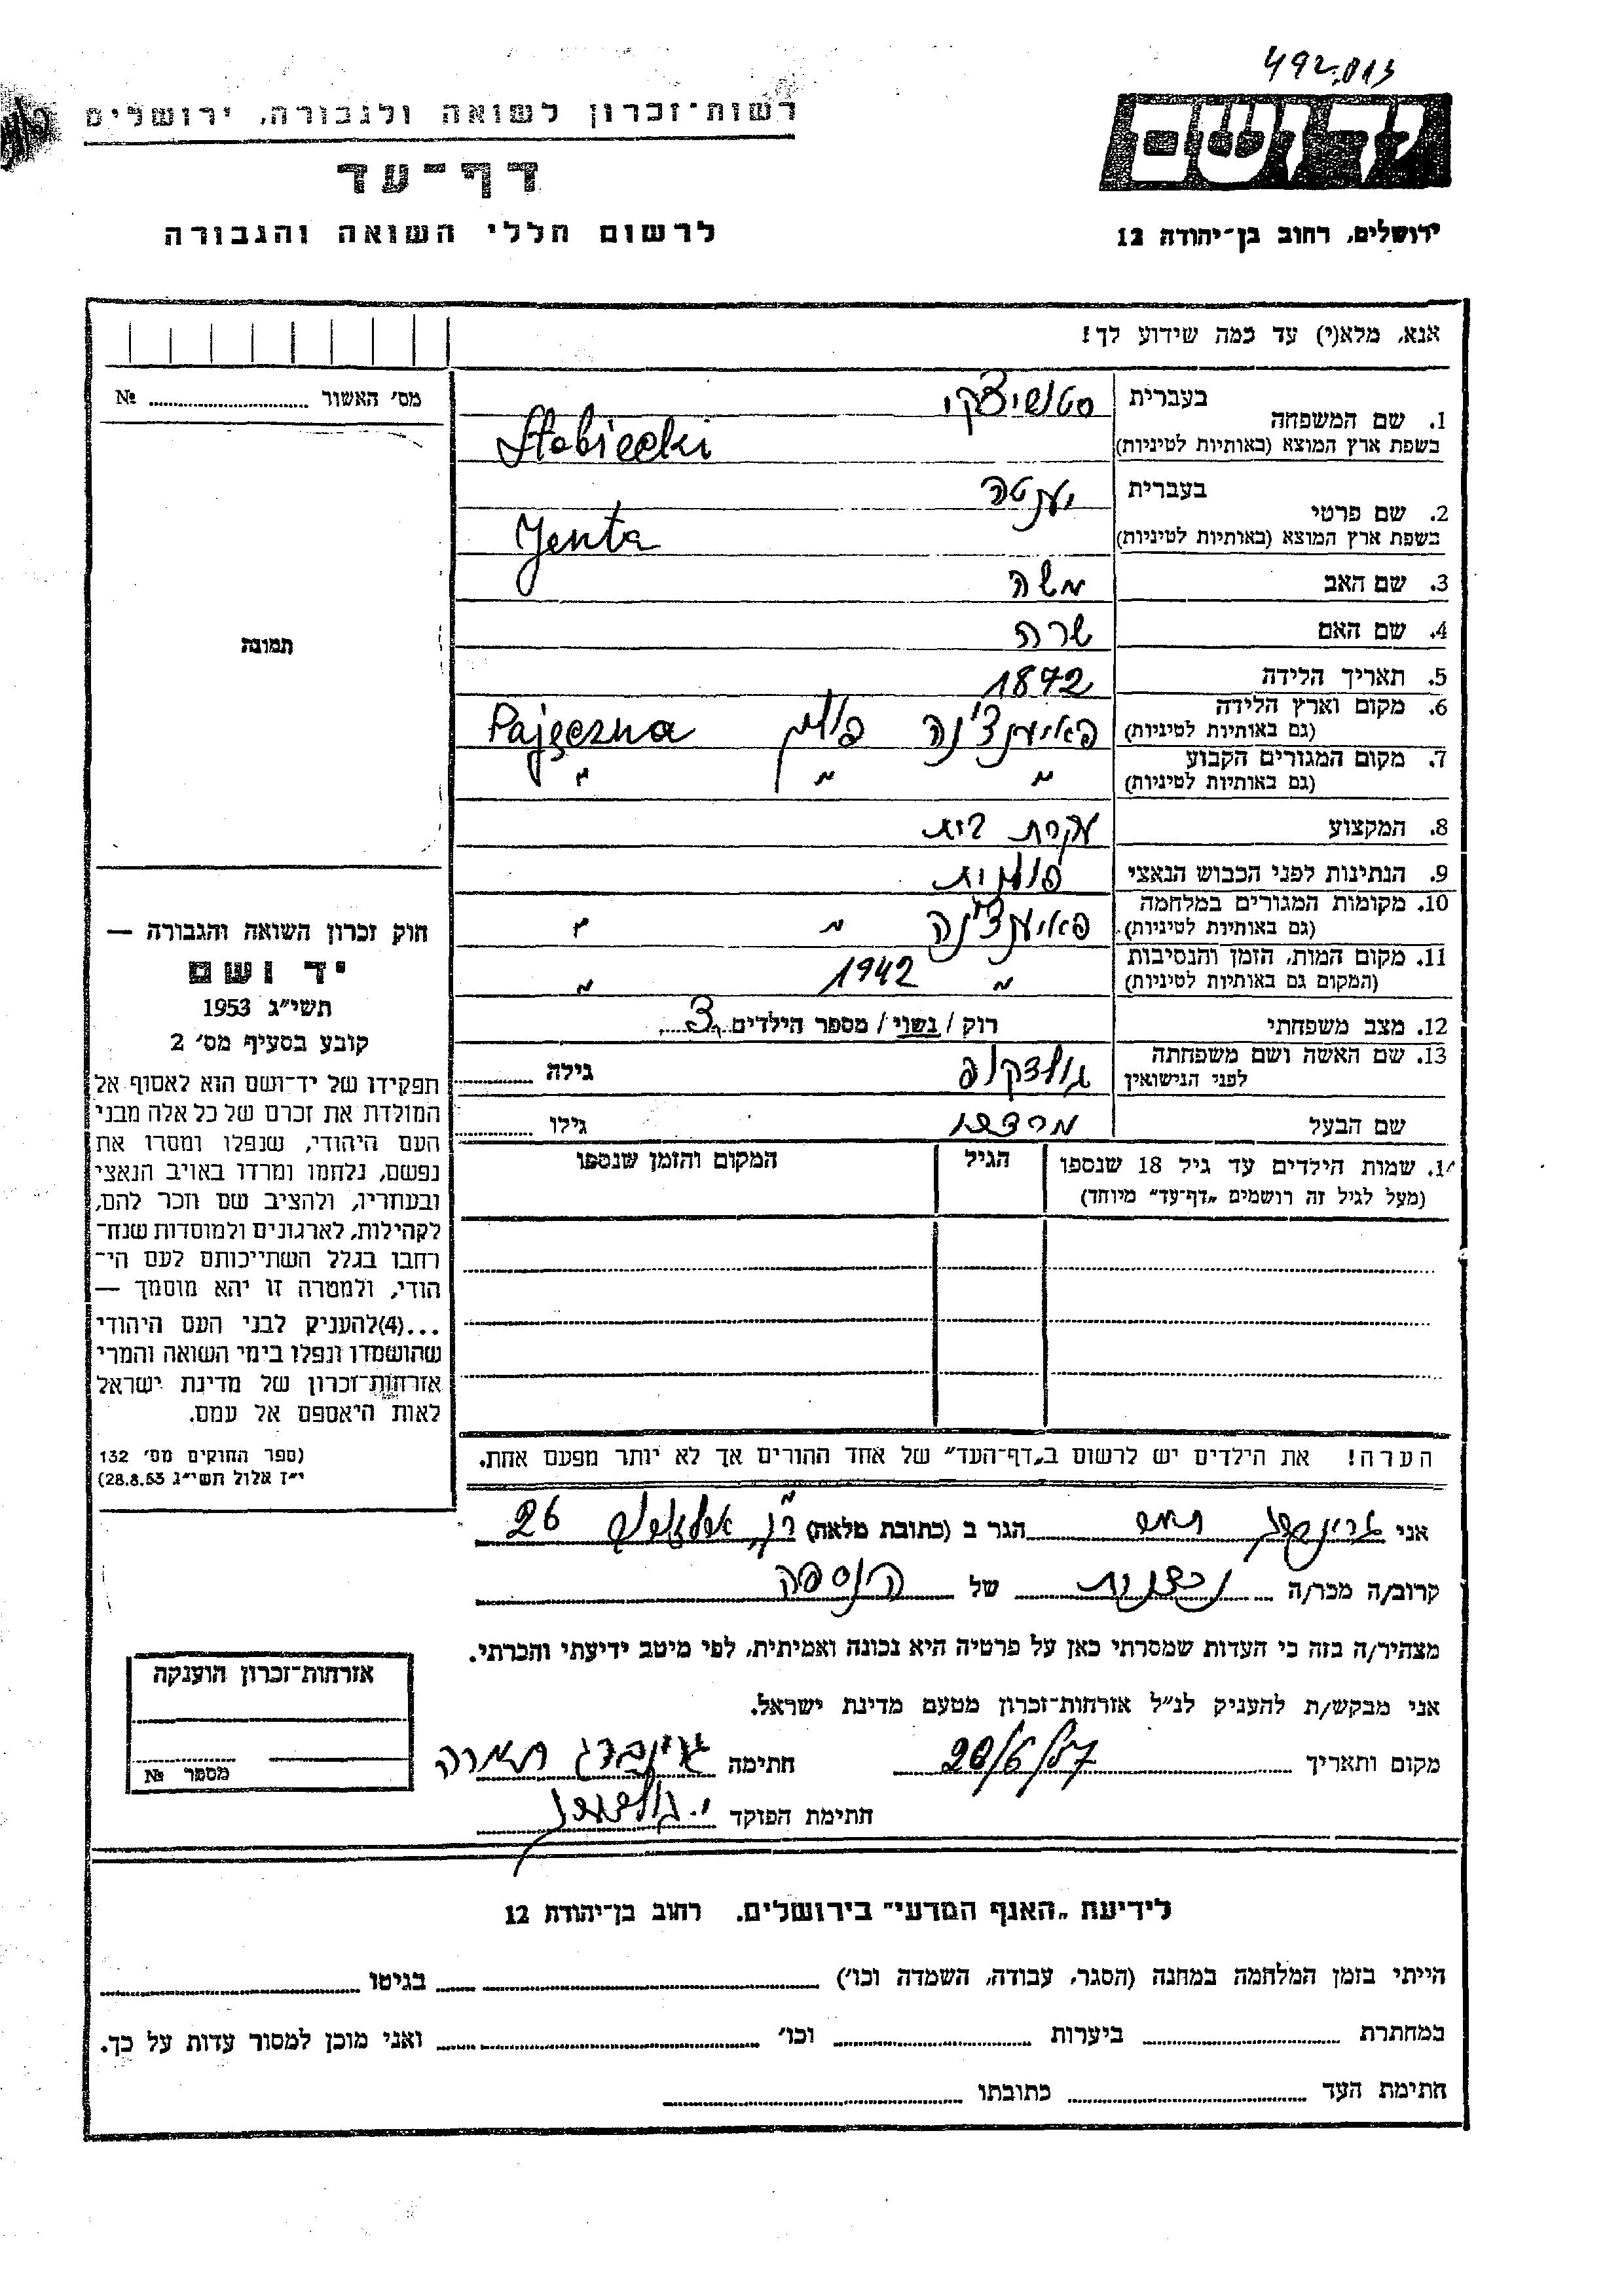 492,013
רשות־זכרון לשואה ולגבורה, ירושלים
יד ושם
דף־עד
לרשום חללי השואה והגבורה
ירושלים, רחוב בן־יהודה 12
אנא, מלא(י) עד כמה שידוע לך!
מס׳ האשור № 
1. שם המשפחה
בעברית
בשפת ארץ המוצא (באותיות לטיניות)
Stobiecki
2. שם פרטי
בעברית יענטה
בשפת ארץ המוצא (באותיות לטיניות) Jenta
3. שם האב משה
4. שם האם שרה
5. תאריך הלידה 1872
6. מקום וארץ הלידה
(גם באותיות לטיניות) פאיענצ'נה פולין Pajęczna
7. מקום המגורים הקבוע
(גם באותיות לטיניות) " " "
8. המקצוע עקרת בית
9. הנתינות לפני הכבוש הנאצי פולנית
10. מקומות המגורים במלחמה
(גם באותיות לטיניות) פאיענצ'נה " "
11. מקום המות, הזמן והנסיבות
(המקום גם באותיות לטיניות) " 1942 "
12. מצב משפחתי רוק / נשוי / מספר הילדים 3
13. שם האשה ושם משפחתה
לפני הנישואין גולדקופ גילה
שם הבעל מרדכי גילו
14. שמות הילדים עד גיל 18 שנספו
(מעל לגיל זה רושמים „דף־עד״ מיוחד)
הגיל
המקום והזמן שנספו
תמונה
חוק זכרון השואה והגבורה —
יד ושם
תשי״ג 1953
קובע בסעיף מס׳ 2
תפקידו של יד־ושם הוא לאסוף אל
המולדת את זכרם של כל אלה מבני
העם היהודי, שנפלו ומסרו את
נפשם, נלחמו ומרדו באויב הנאצי
ובעוזריו, ולהציב שם וזכר להם,
לקהילות, לארגונים ולמוסדות שנח־
רבו בגלל השתייכותם לעם הי־
הודי, ולמטרה זו יהא מוסמך —
...(4)להעניק לבני העם היהודי
שהושמדו ונפלו בימי השואה והמרי
אזרחות־זכרון של מדינת ישראל
לאות היאספם אל עמם.
(ספר החוקים מס׳ 132
י״ז אלול תשי״ג 28.8.53)
הערה! את הילדים יש לרשום ב„דף־העד״ של אחד ההורים אך לא יותר מפעם אחת.
אני גרינברג הגר ב (כתובת מלאה) 26
קרוב/ה מכר/ה נכדנית של הנספה
מצהיר/ה בזה כי העדות שמסרתי כאן על פרטיה היא נכונה ואמיתית, לפי מיטב ידיעתי והכרתי.
אני מבקש/ת להעניק לנ״ל אזרחות־זכרון מטעם מדינת ישראל.
מקום ותאריך 20/6/57 חתימה גרינברג תמרה
חתימת הפוקד
אזרחות־זכרון הוענקה
מספר №
לידיעת „האגף המדעי״ בירושלים. רחוב בן־יהודה 12
הייתי בזמן המלחמה במחנה (הסגר, עבודה, השמדה וכו׳) בגיטו
במחתרת ביערות וכו׳ ואני מוכן למסור עדות על כך.
חתימת העד כתובתו